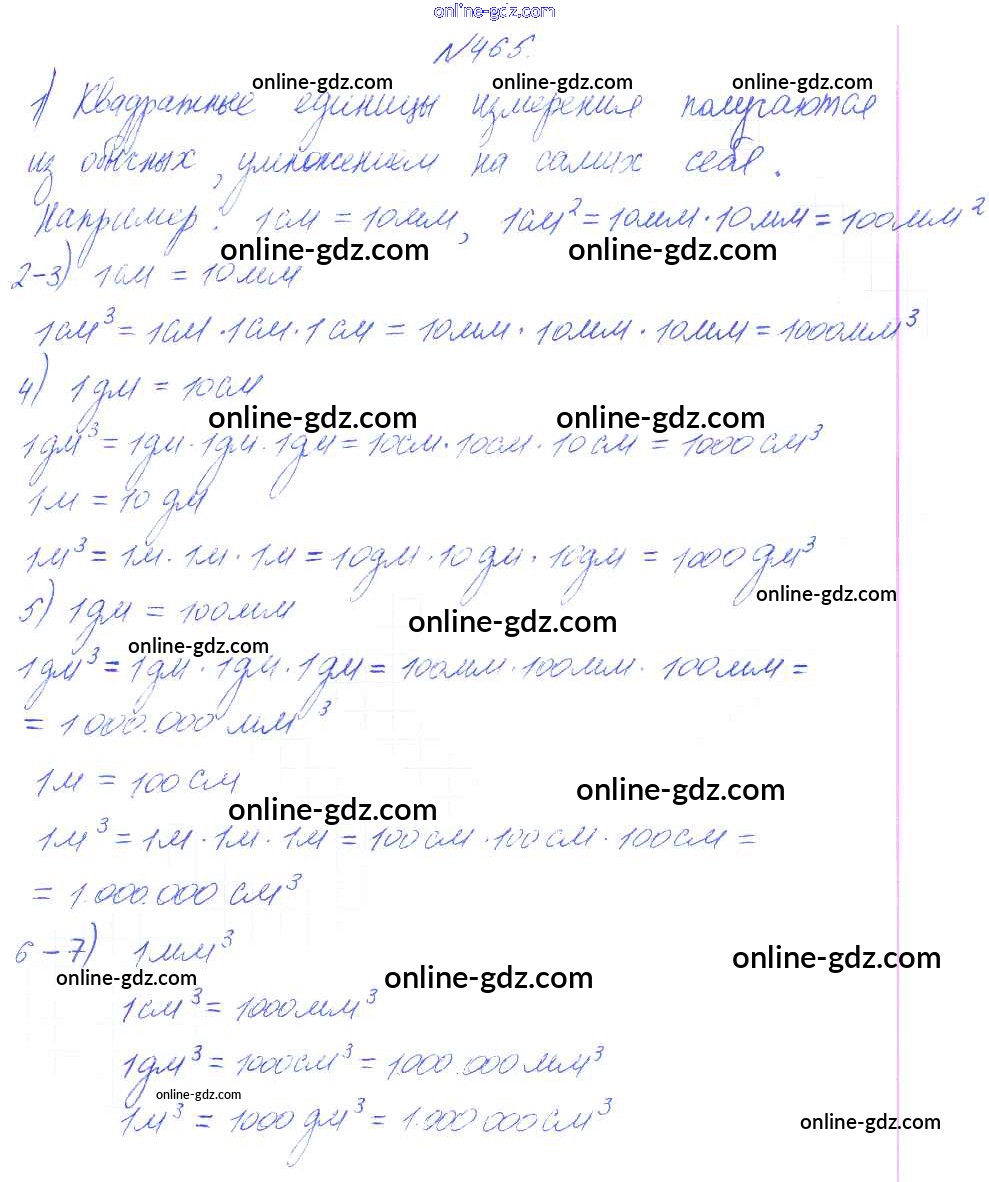 online-gdz.com
№465.
online-gdz.com online-gdz.com online-gdz.com
1) Квадратные единицы измерения получаются
из обычных, умножением на самих себе.
Например: 1см = 10мм, 1см² = 10мм · 10мм = 100мм²
online-gdz.com online-gdz.com
2-3) 1см = 10мм
1см³ = 1см · 1см · 1см = 10мм · 10мм · 10мм = 1000мм³
4) 1дм = 10см
online-gdz.com online-gdz.com
1дм³ = 1дм · 1дм · 1дм = 10см · 10см · 10см = 1000см³
1м = 10 дм
1м³ = 1м · 1м · 1м = 10дм · 10дм · 10дм = 1000дм³
online-gdz.com
5) 1дм = 100мм
online-gdz.com
online-gdz.com
1дм³ = 1дм · 1дм · 1дм = 100мм · 100мм · 100мм =
= 1000.000мм³
1м = 100см
online-gdz.com
online-gdz.com
1м³ = 1м · 1м · 1м = 100см · 100см · 100см =
= 1.000.000 см³
6-7) 1мм³
online-gdz.com
online-gdz.com online-gdz.com
1см³ = 1000мм³
1дм³ = 1000см³ = 1000.000мм³
online-gdz.com
1м³ = 1000дм³ = 1.000 000см³
online-gdz.com